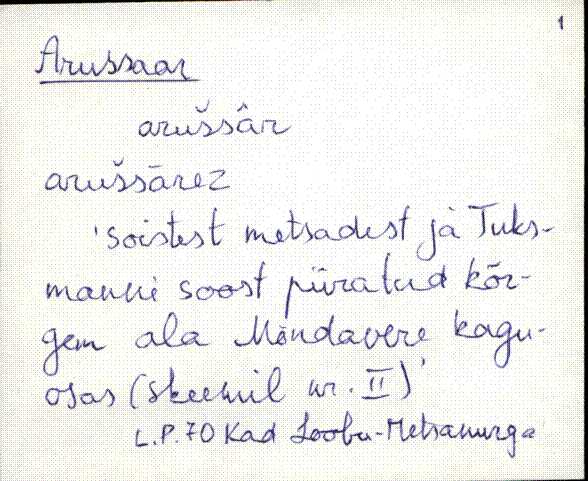 1
Arussaar
arušsâr
arušsārez
'soistest metsadest ja Tuks-
manni soost piiratud kõr-
gem ala Mõndavere kagu-
osas (skeemil nr. II)'
L.P. 70 Kad Loobu-Metsanurga